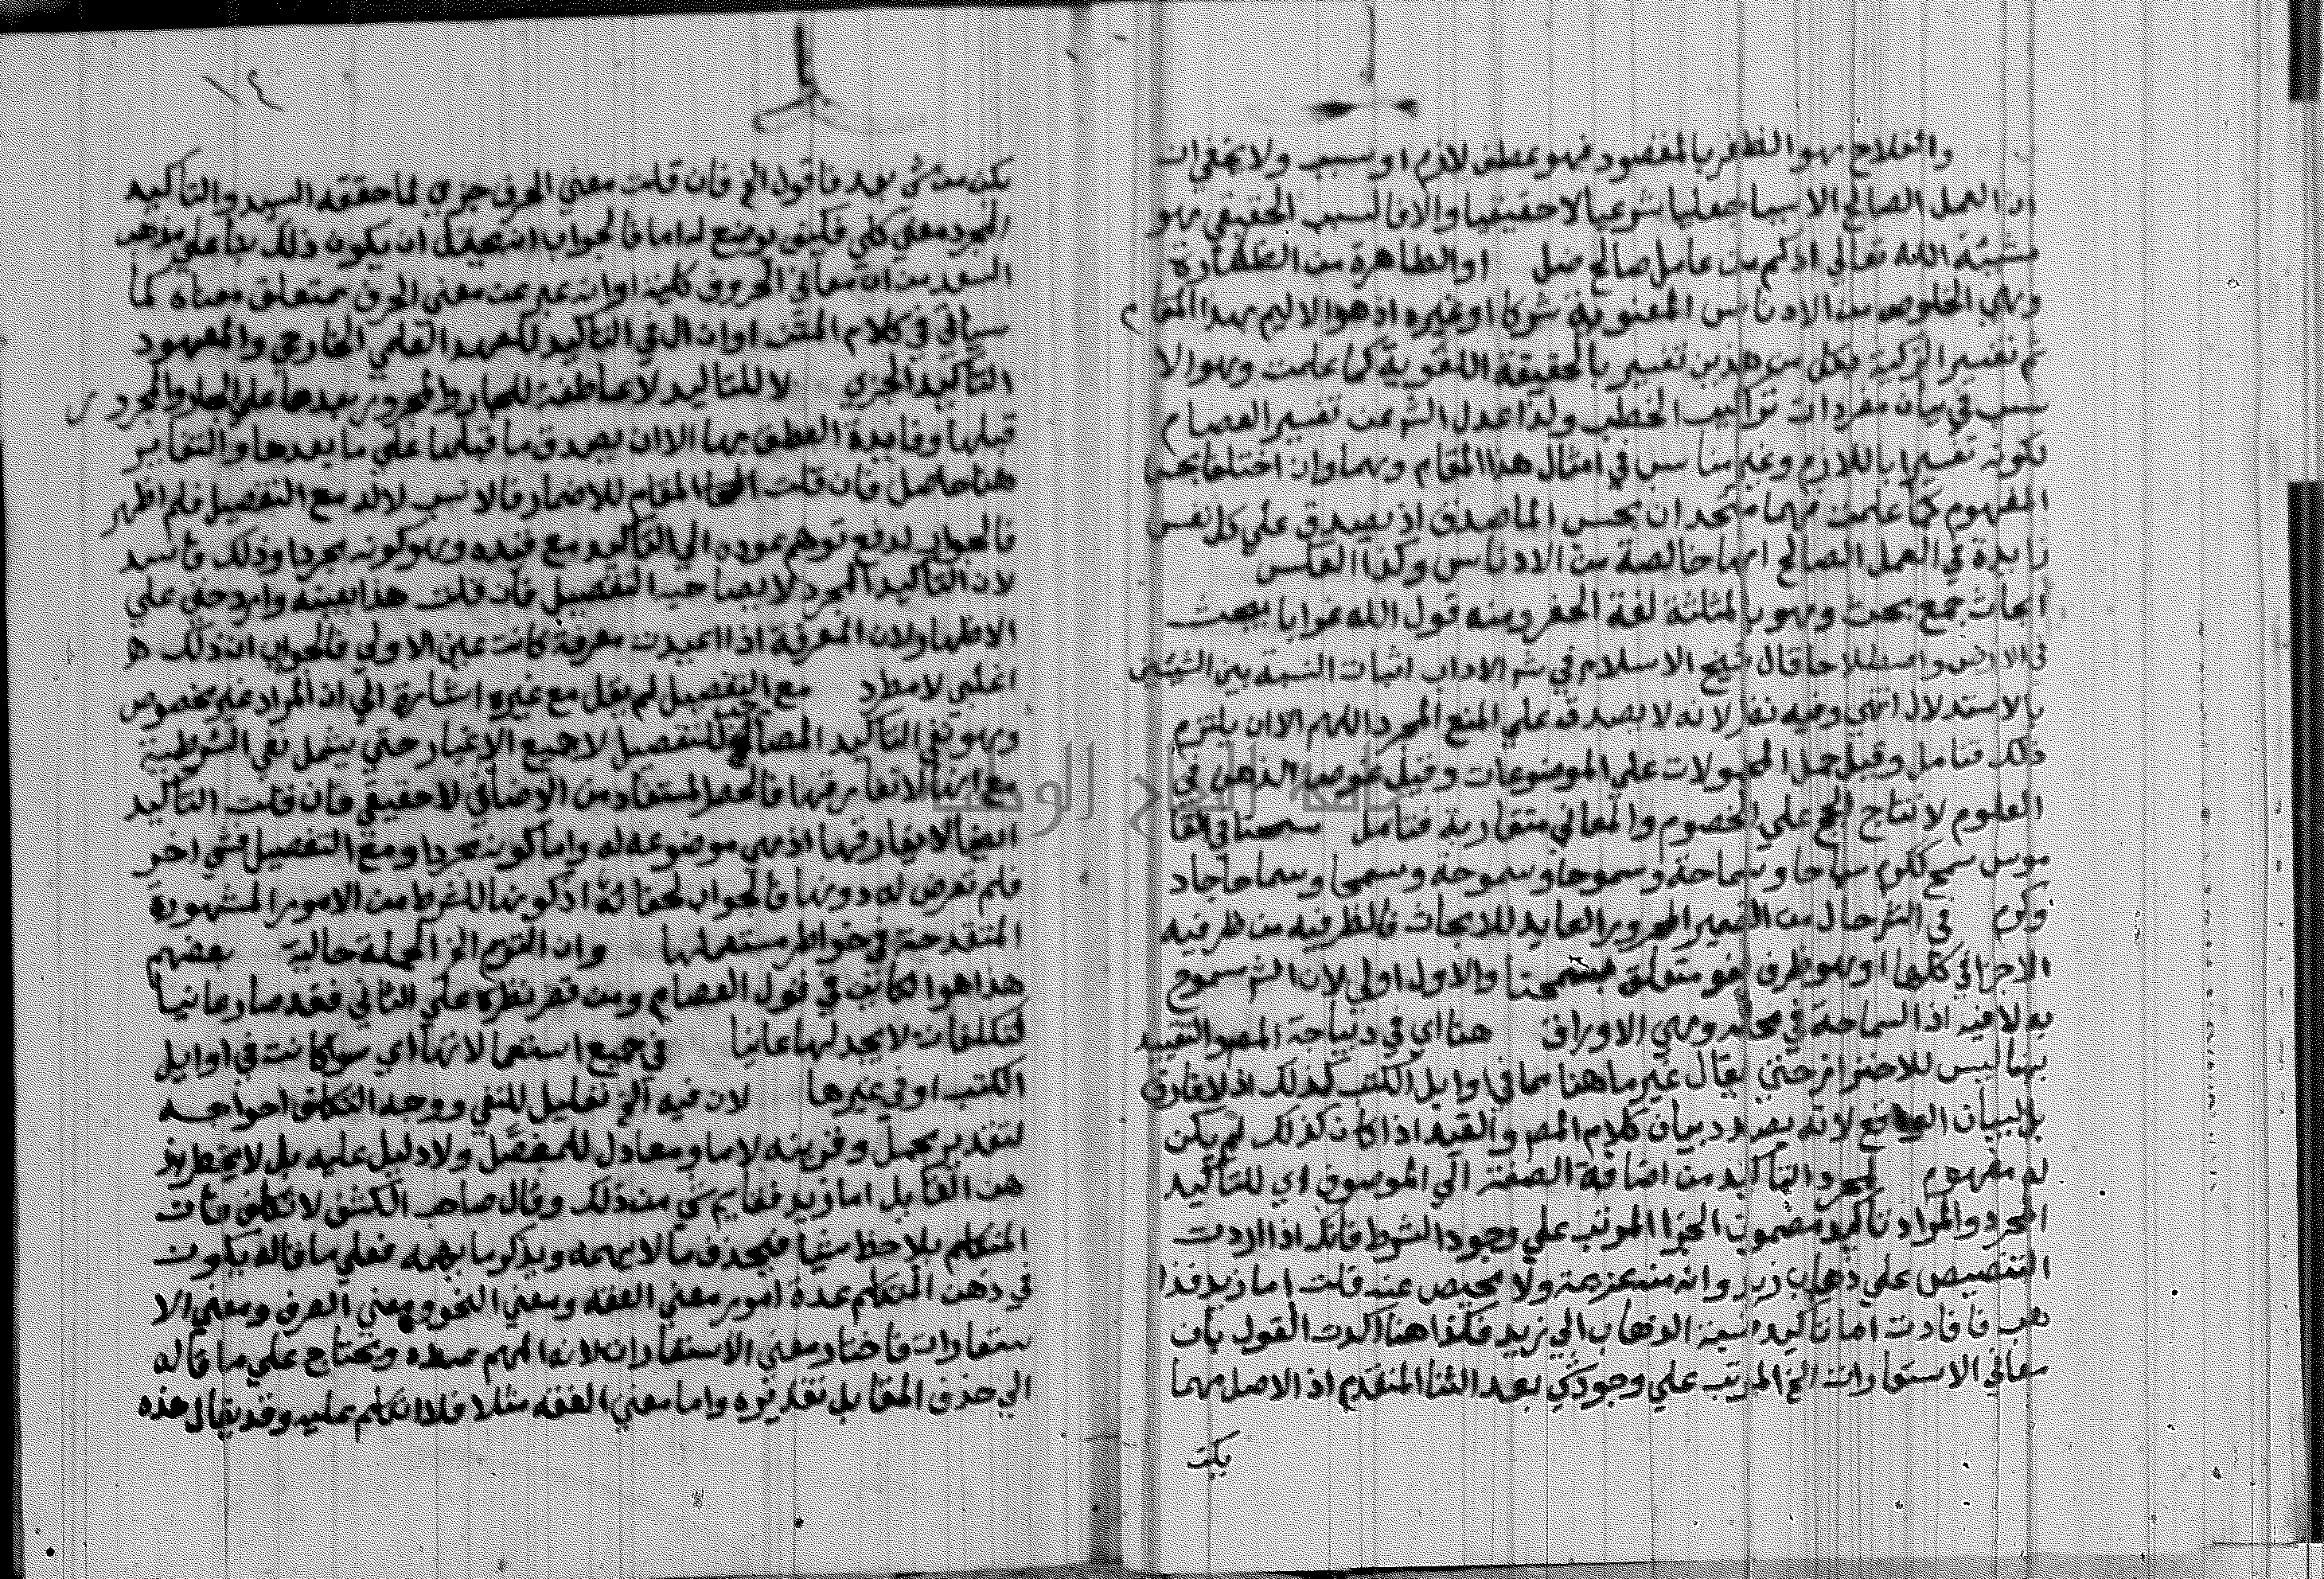 والفلاح هو الظفر بالمقصود فهو عطف لازم او سبب ولا يخفى ان
ان العمل الصالح الا سببا جعليا شرعيا لا حقيقيا والا فالسبب الحقيقي هو
مشيئة الله تعالى اذ كم من عامل صالح ضل او الطاهرة من الطهارة
وهي الخلوص من الادناس المعنوية شركا او غيره اذ هو الاليم بهذا المقام
ثم تفسير الزكية بكل من هذين تفسير بالحقيقة اللغوية كما علمت وهو الا
نسب في بيان مفردات تراكيب الخطب ولذا عدل الش عن تفسير العصام
لكونه تفسيرا باللازم وغير مناسب في امثال هذا المقام وهما وان اختلفا بحسب
المفهوم كما علمت فهما متحدان بحسب الماصدق اذ يصدق على كل نفس
زايدة في العمل الصالح انها خالصة من الادناس وكذا العكس
ابحاث جمع بحث وهو بالمثلثة لغة الحفر ومنه قول الله غرابا يبحث
في الارض واصطلاحا قال شيخ الاسلام في شر الاداب اثبات النسبة بين الشيئين
بالاستدلال انتهى وفيه نظر لانه لا يصدق على المنع المجرد اللهم الا ان يلتزم
ذلك فتامل وقيل حمل المحمولات على الموضوعات وقيل غوص الذهن في
العلوم لانتاج الحج على الخصوم والمعاني متقاربة فتامل سمحنا في القا
موس سمح ككرم سماحا وسماحة وسموحا وسموحة وسمحا وسماحا جاد
وكرم في الش حال من الضمير المجرور العايد للابحاث فالظرفيه من ظرفية
الاجزا في كلها او هو ظرف لغو متعلق بسمحنا والاول اولى لان الش مسموح
به لا فيه اذ السماحة في محله وهي الاوراق هنا اي في ديباجة المص والتقييد
بهنا ليس للاحتراز حتى يقال غير ما هنا مما في اوايل الكتب كذلك اذ لا فارق
بل لبيان الواقع لانه بصدد بيان كلام المص والقيد اذا كان كذلك لم يكن
له مفهوم لمجرد التأكيد من اضافة الصفة الى الموصوف اي للتأكيد
المجرد والمراد تأكيد مضمون الجزا المرتب على وجود الشرط فانك اذا اردت
التنصيص على ذهاب زيد وانه منه عزيمة ولا محيص عنه قلت اما زيد فذا
هب فافادت اما تأكيد نسبة الذهاب الى زيد فكذا هنا اكدت القول بان
معاني الاستعارات الخ المرتب على وجود شي بعد الثنا المتقدم اذ الاصل مهما
يكن
١٢
يكن من شي بعد فاقول الخ فان قلت معنى الحرف جزي لما حققه السيد والتأكيد
المجرد معنى كلي فكيف توضع له اما فالجواب انه يحتمل ان يكون ذلك بنا على مذهب
السعد من ان معاني الحروف كلية او انه عبر عن معنى الحرف بمتعلق معناه كما
سياتي في كلام المتن او ان ال في التأكيد للعهد العلمي الخارجي والمعهود
التأكيد الجزي لا للتأكيد لا عاطفة للجار والمجرور بعدها على الجار والمجرور
قبلها وفايدة العطف بها الا ان يصدق ما قبلها على ما بعدها والتغاير
هنا حاصل فان قلت المقام للاضمار فالانسب لا له مع التفصيل فلم اظهر
فالجواب لدفع توهم عوده الى التأكيد مع قيده وهو كونه مجردا وذلك فاسد
لان التأكيد المجرد لا يصاحب التفصيل فان قلت هذا بعينه وارد حتى على
الاظهار لان المعرفة اذا اعيدت معرفة كانت عين الاولى فالجواب ان ذلك
اغلبي لا مطرد مع التفصيل لم يقل مع غيره اشارة الى اذ المراد غير مخصوص
وهو نفي التأكيد المصاحب للتفصيل لا جميع الاغيار حتى يشمل نفي الشرطية
مع انها لا تفارقها فالحصر المستفاد من الاضافي لا حقيقي فان قلت التأكيد
ايضا لا يفارقها اذ هي موضوعة له واما كونه مجردا ومع التفصيل فشي اخر
فلم تعرض له دونها فالجواب لخفائه اذ كونها للشرط من الامور المشهورة
المتقدحة في خواطر مستعملها وان التزم الخ الجملة حالية بعضهم
هذا هو الكاتب في قول العصام ومن قصر نظره على الثاني فقد صار عانيا
لتكلفات لا يجد لها عانيا في جميع استعما لانها اي سوا كانت في اوايل
الكتب او في غيرها لان فيه الخ تعليل للنفي ووجه التكلف احواجه
لتقدير مجمل وقرينه لاما ومعادل للمفصل ولا دليل عليه بل لا يخطر بذ
هن القايل اما زيد فقايم شي من ذلك وقال صاحب الكشف لا تكلف فات
المتكلم يلاحظ شيا فيحذف ما لا يهمه ويذكر ما يهمه فعلى ما قاله يكون
في ذهن المتكلم عدة امور معنى الفقه ومعنى النحو ومعنى الصرف ومعنى الا
ستعارات فاختار معنى الاستعارات لانه المهم عنده وتحتاج على ما قاله
الى حذف المقابل تقديره واما معنى الفقه مثلا فلا اتكلم عليه وقد يقال هذه